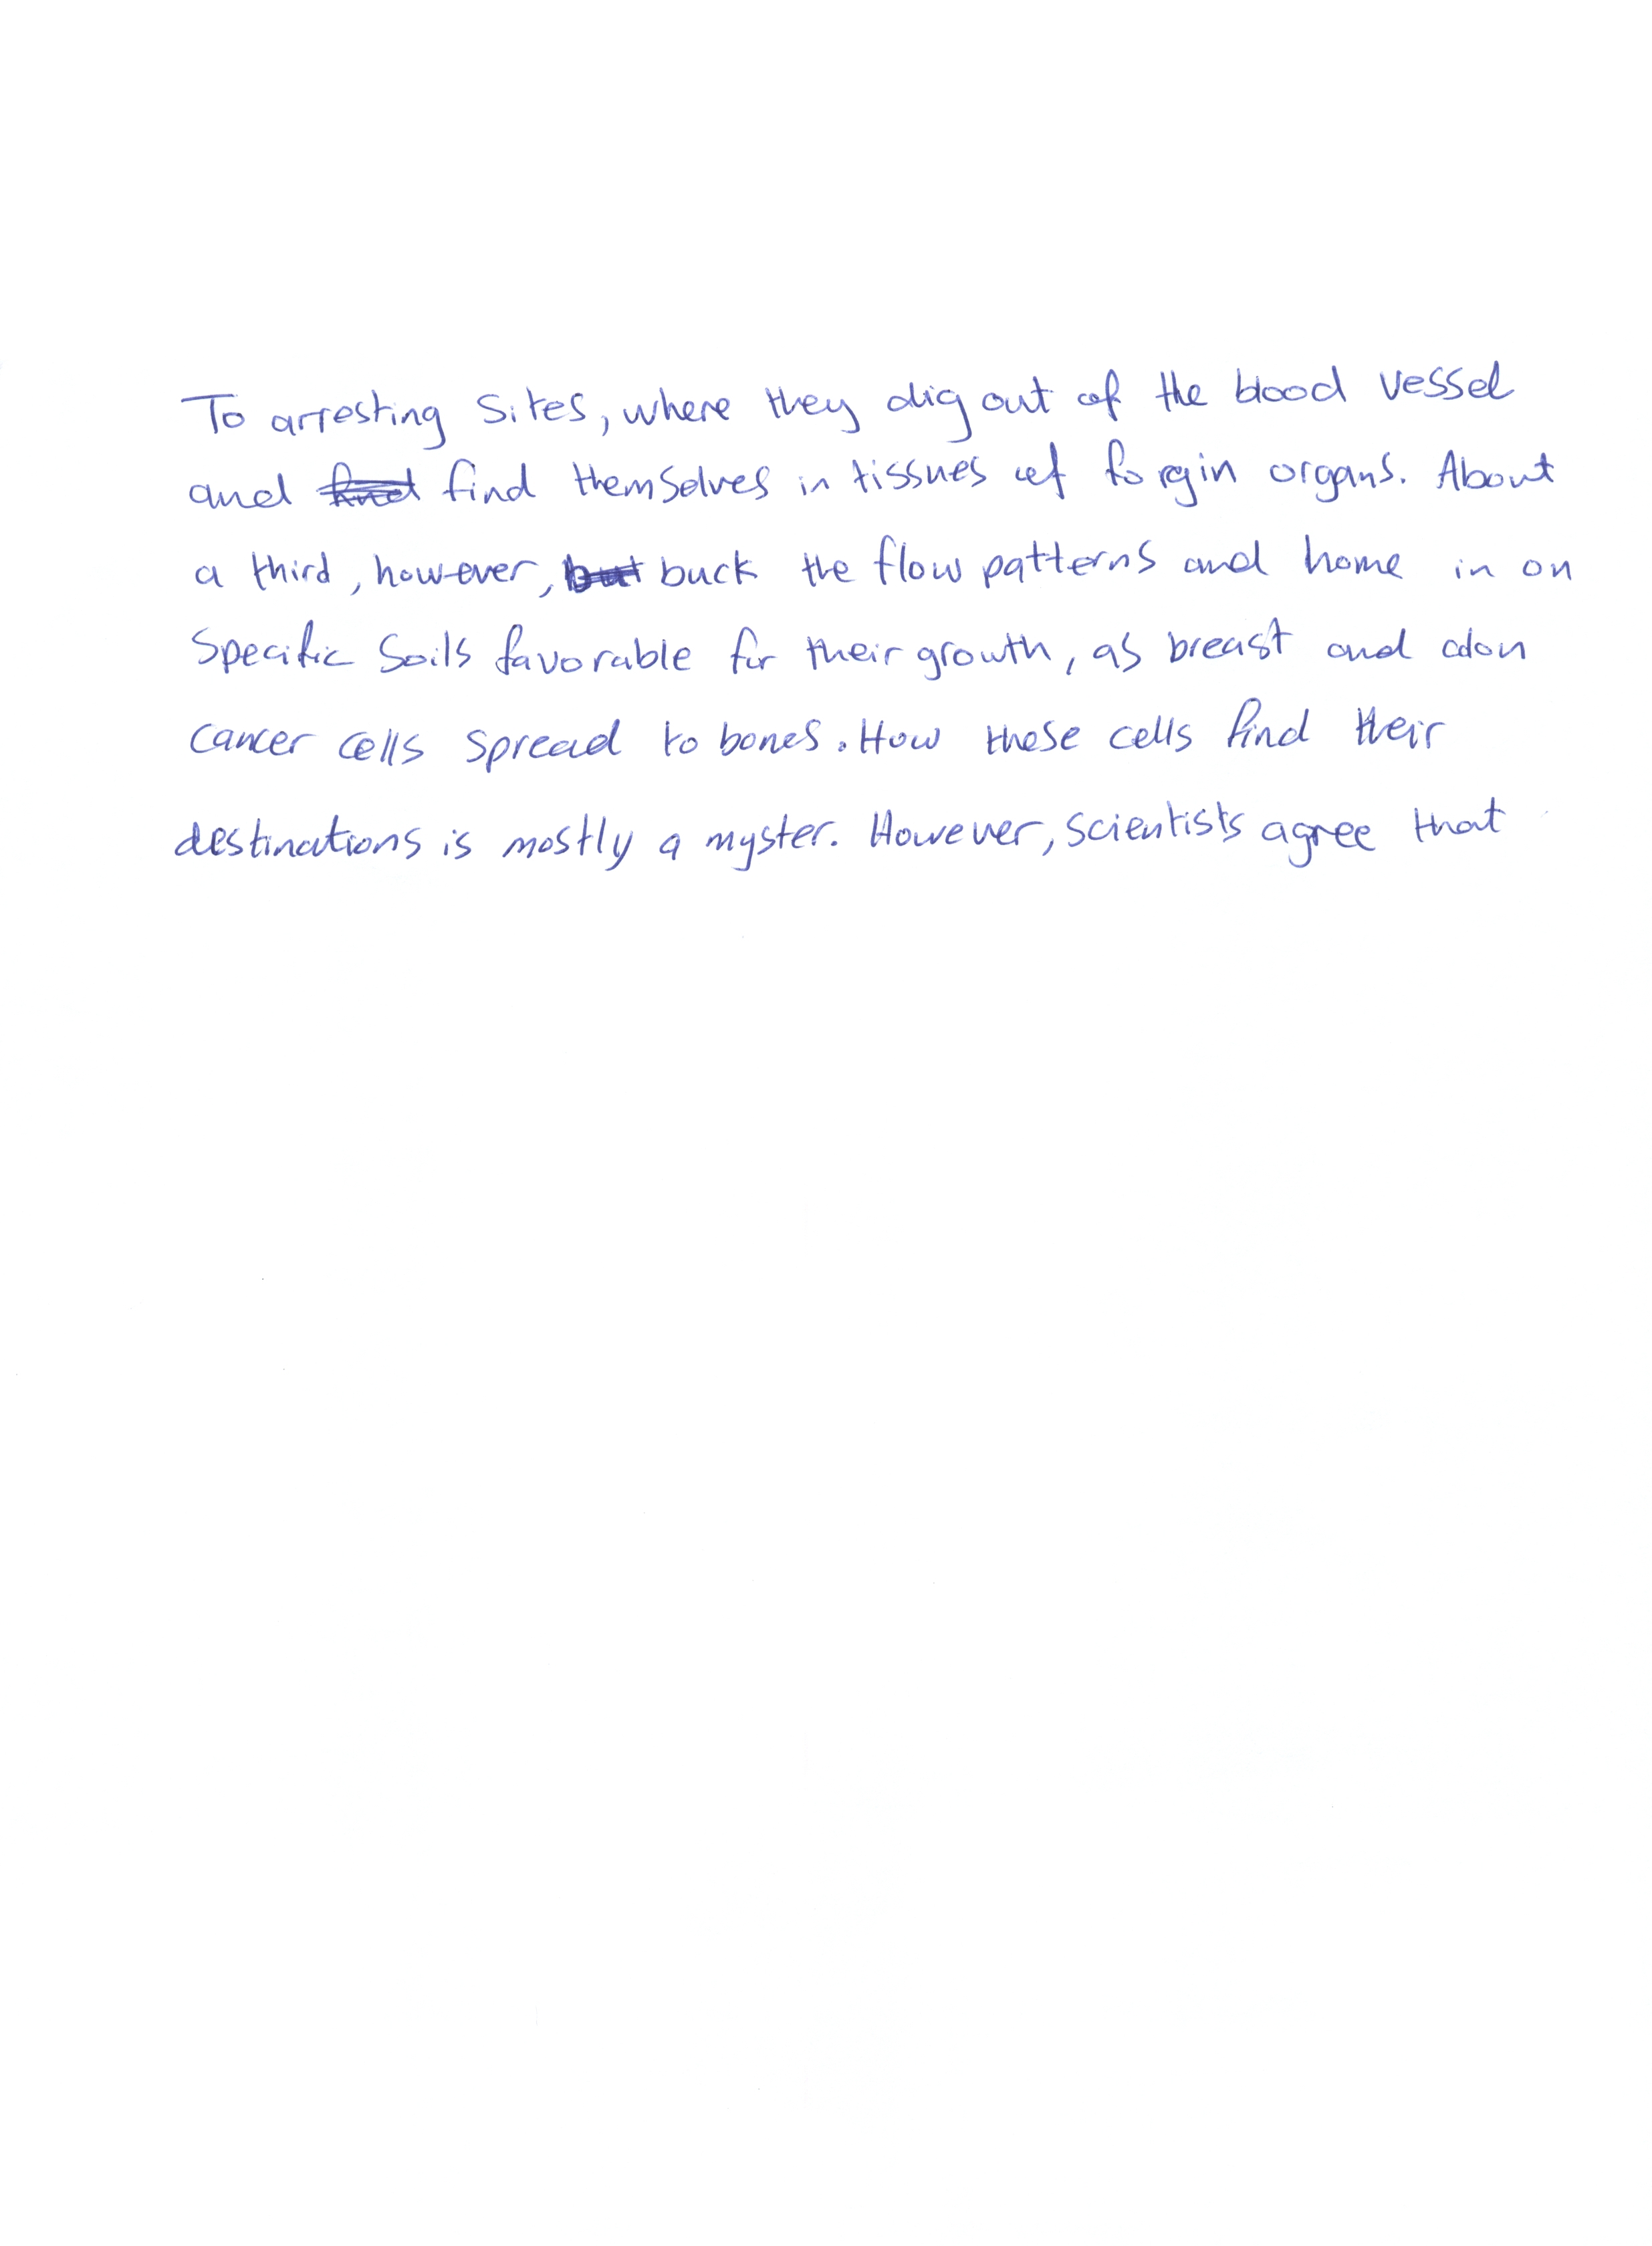 To arresting sites, where they dig out of the blood vessel
and find themselves in tissues of forgin organs. About
a third, however, buck the flow patterns and home in on
specific soils favorable for their growth, as breast and colon
cancer cells spread to bones. How these cells find their
destinations is mostly a myster. However, scientists agree that